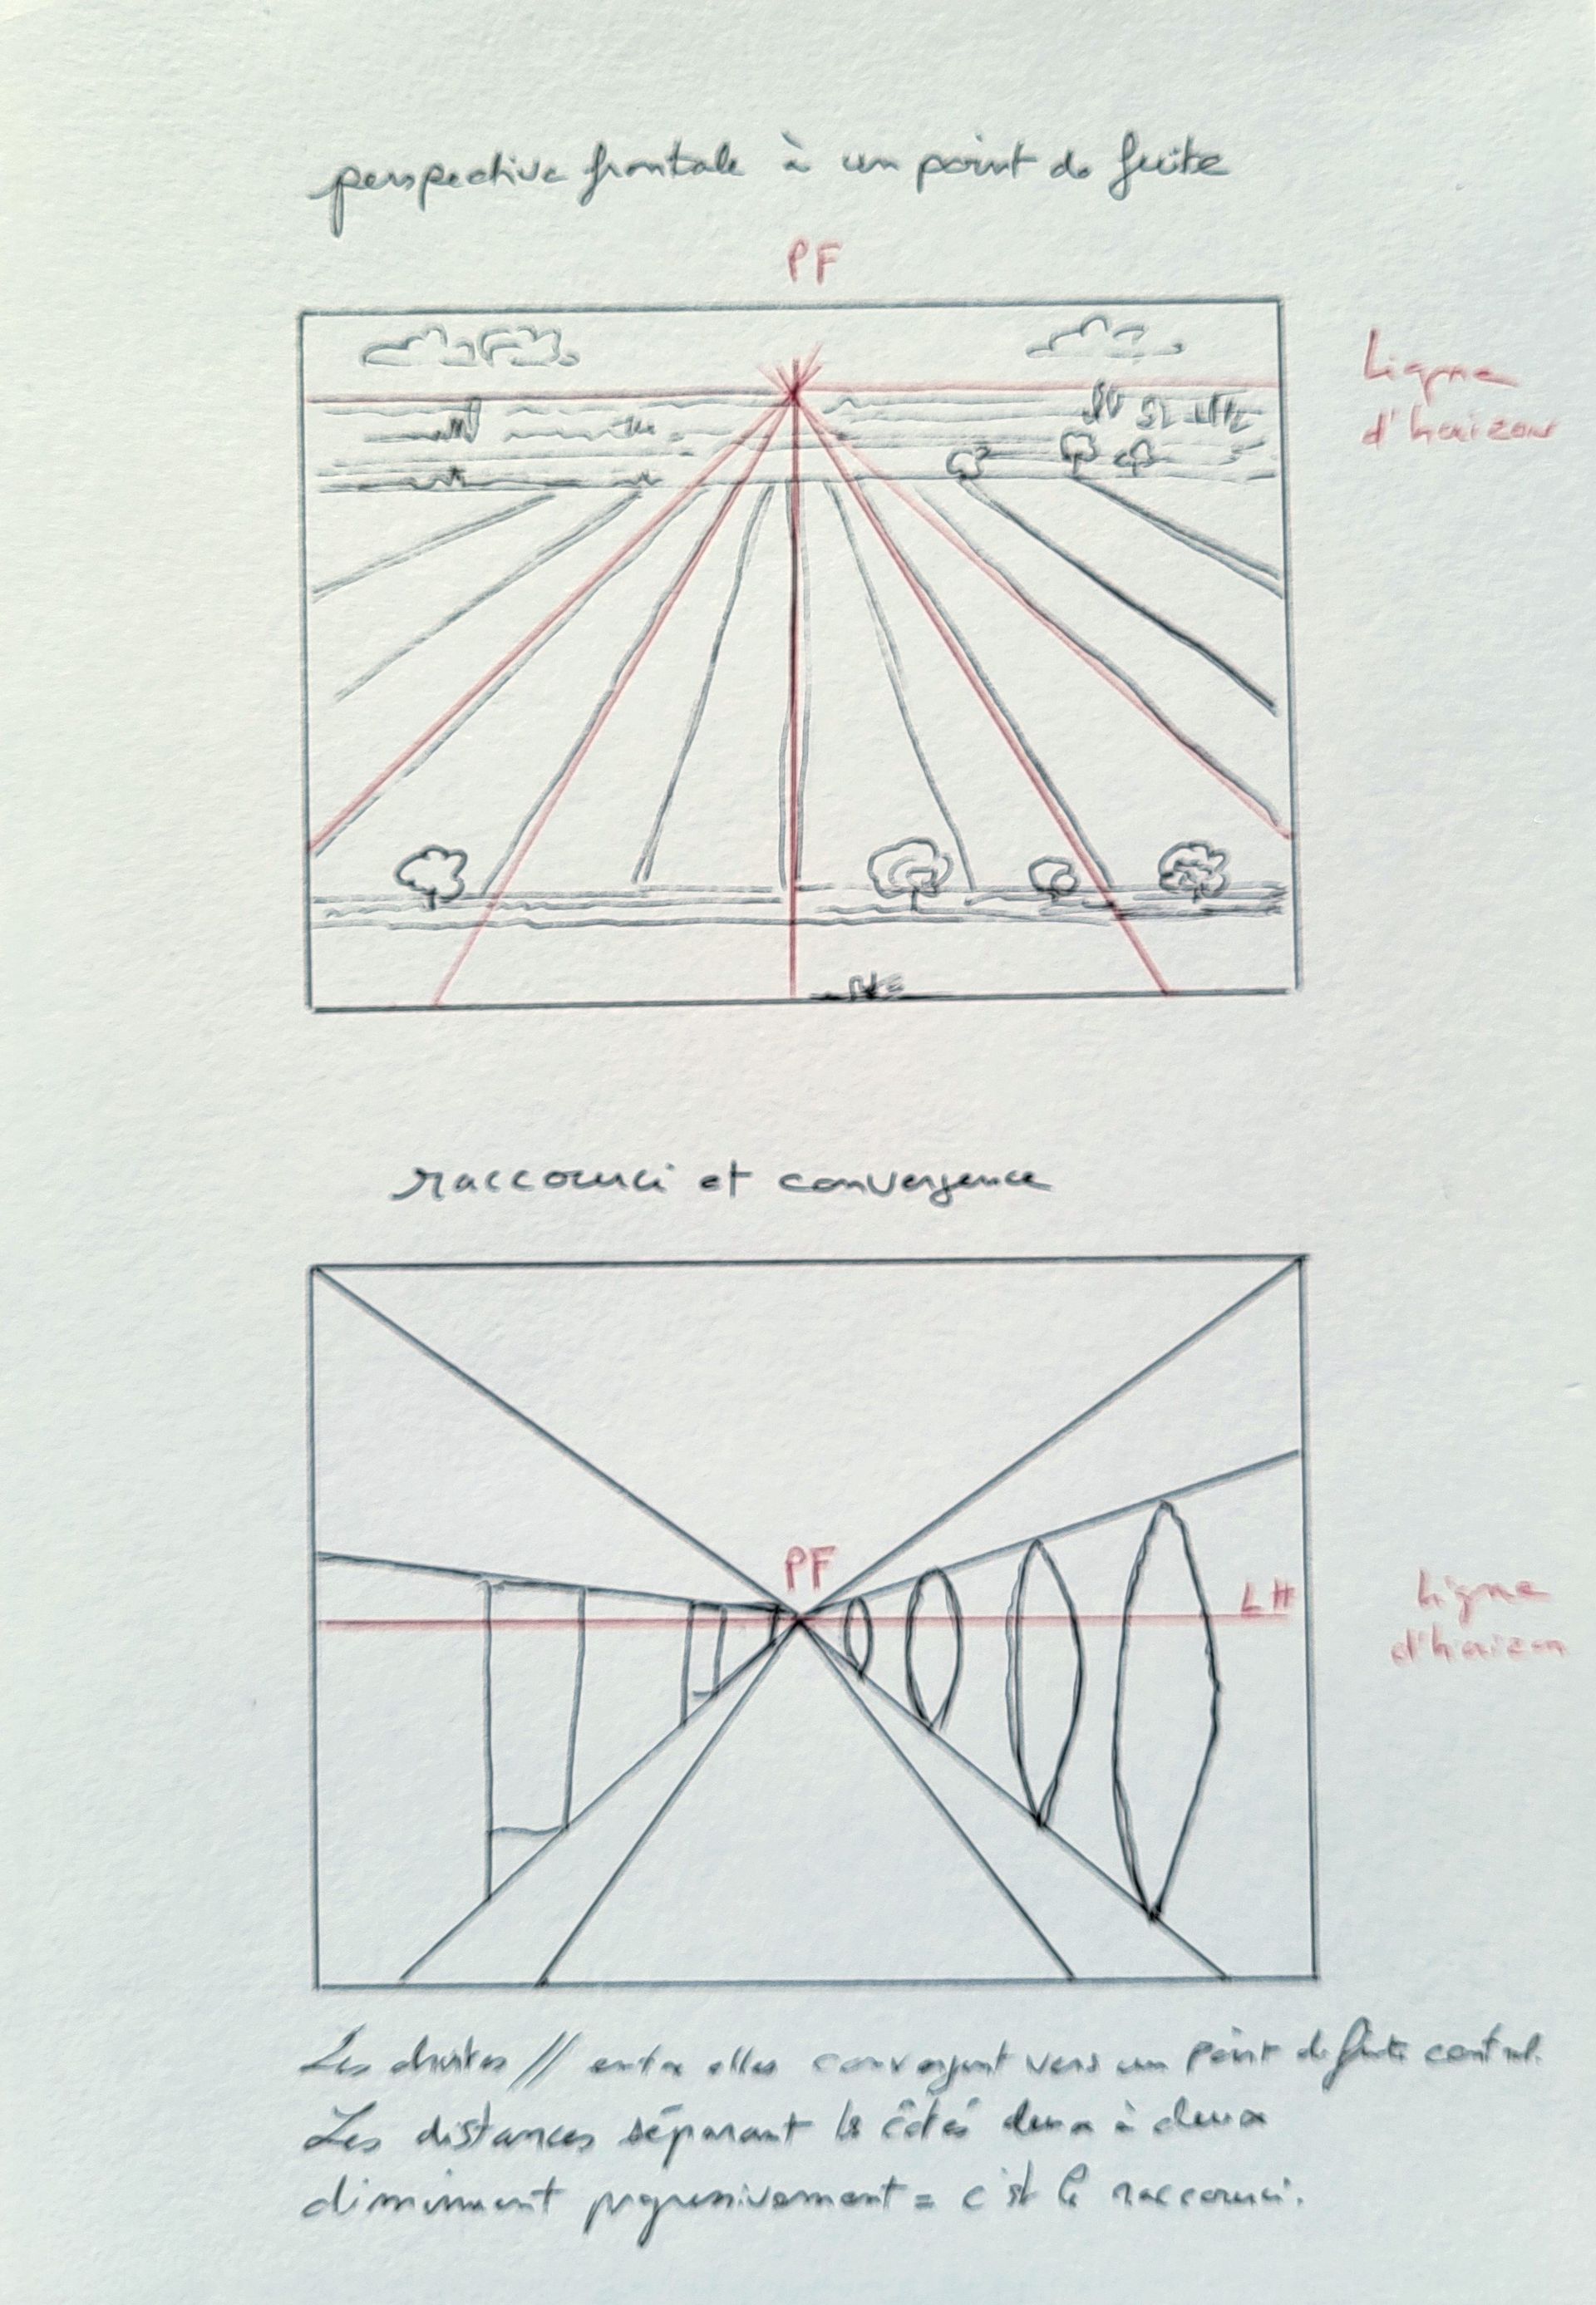 perspective frontale à un point de fuite
PF
Ligne
d'horizon
raccourci et convergence
PF
LH
Ligne
d'horizon
Les droites // entre elles convergent vers un point de fuite central.
Les distances séparant les côtés deux à deux
diminuent progressivement = c'est le raccourci.